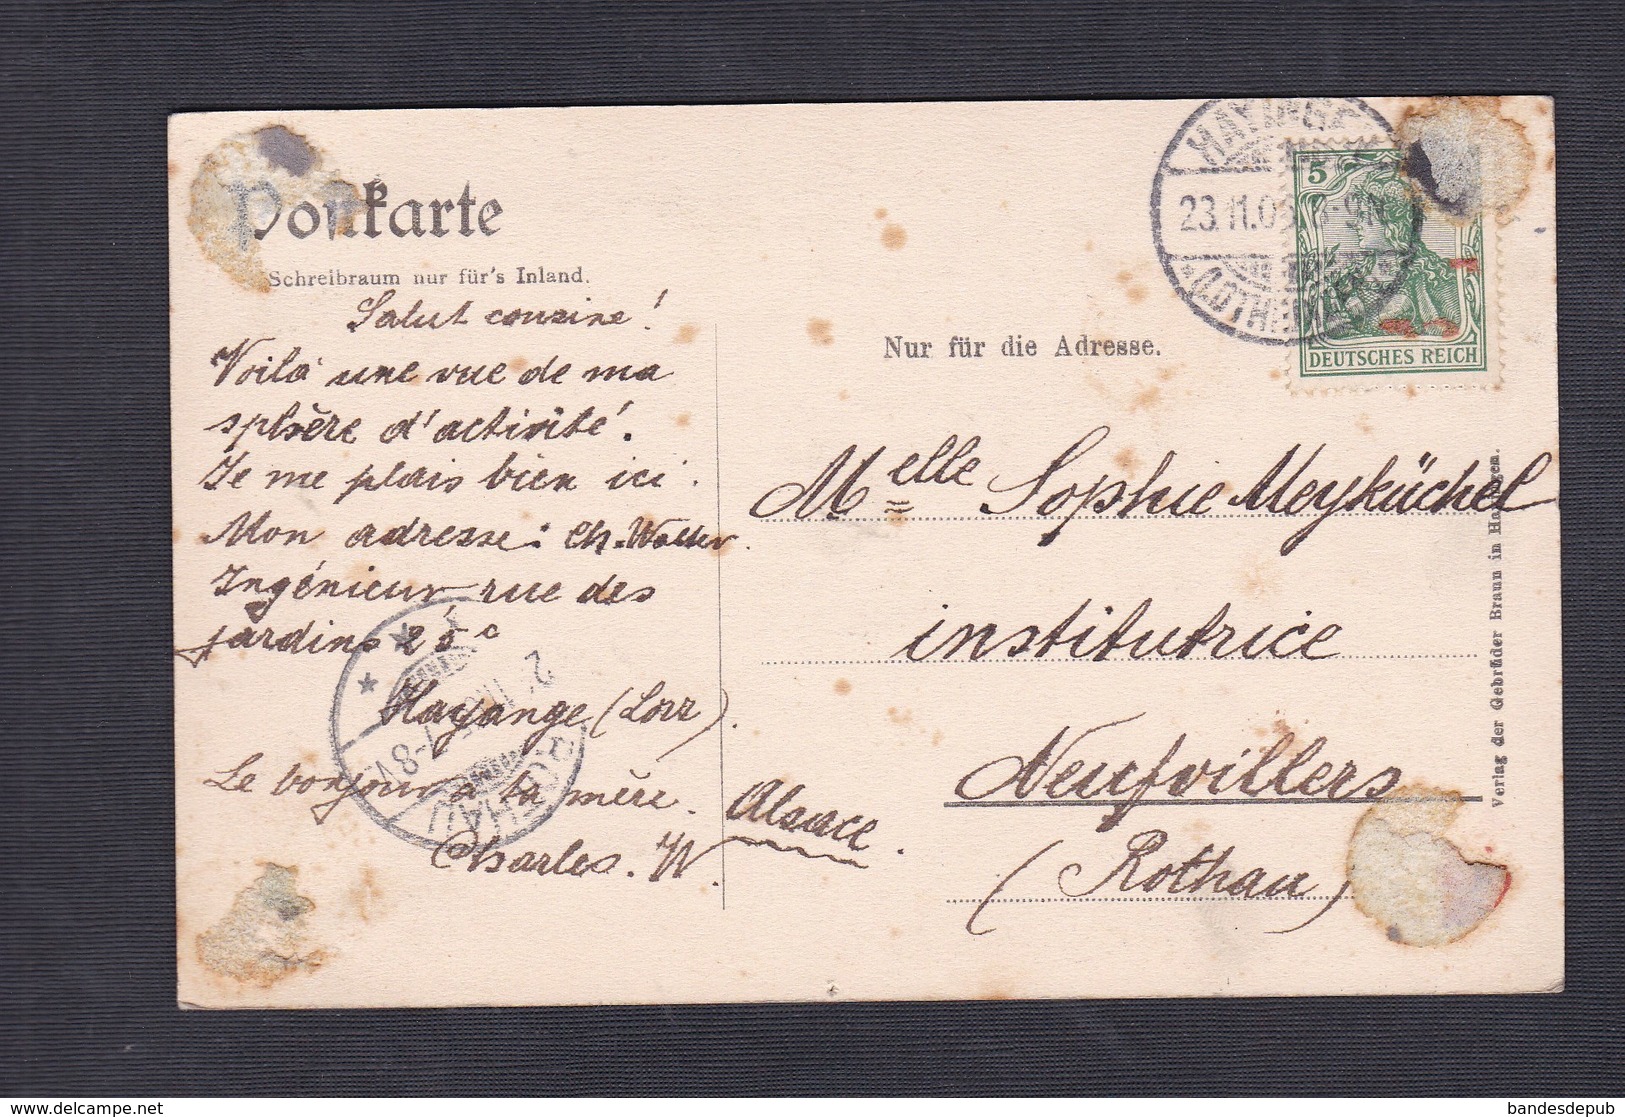 Postkarte
Schreibraum nur für's Inland.
Salut cousine!
Voilà une vue de ma
sphère d'activité.
Je me plais bien ici.
Mon adresse: Ch. Walter
Ingénieur rue des
jardins 25c
Hayange (Lorr).
Le bonjour à ta mère.
Charles. W.
HAYINGEN
23.11.05
(LOTHRINGEN)
5
DEUTSCHES REICH
Nur für die Adresse.
Melle Sophie Meyküchel
institutrice
Neufvillers
(Rothau)
Alsace.
ROTHAU
7-8V
Verlag der Gebrüder Braun in Hayingen.
bandesdepub